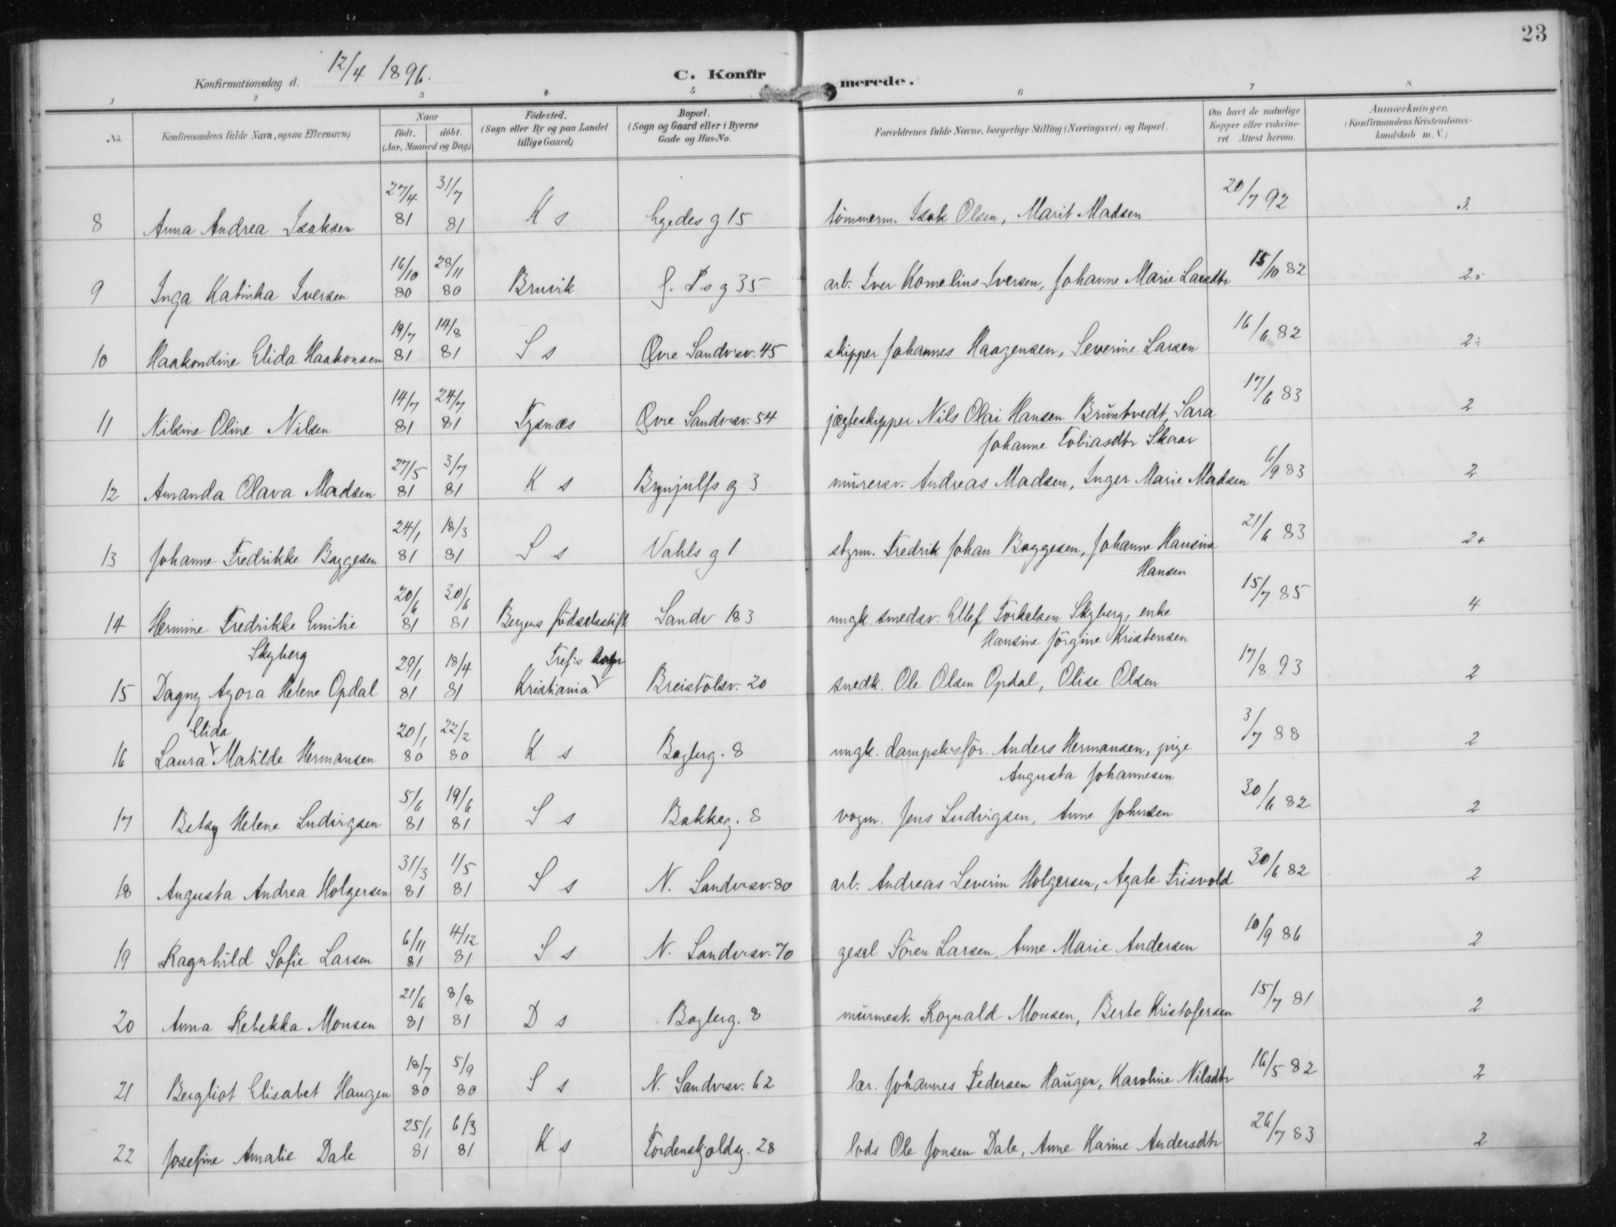 23
Konfirmationsdag d. 12/4 1896.
C. Konfirmerede.
1 2 3 4 5 6 7 8
No.
Konfirmandens fulde Navn, ogsaa Efternavn)
Naar
Født. døbt.
(Aar, Maaned og Dag)
Fødested.
(Sogn eller By og paa Landet
tillige Gaard)
Bopæl.
(Sogn og Gaard eller i Byerne
Gade og Hus-No.
Forældrenes fulde Navne, borgerlige Stilling (Næringsvei) og Bopæl.
Om havt de naturlige
Kopper eller vakcine-
ret Attest herom.
Anmærkninger.
(Konfirmandens Kristendoms-
kundskab m. V.)
8 Anna Andrea Isaksen 27/4 81 31/7 81 K s g 15 tømmerm. Isak Olsen, Marit Madsen 20/7 92 3.
9 Inga Katinka Iversen 16/10 80 28/11 80 Bruvik g 35 arb. Iver Kornelius Iversen, Johanne Marie Larsdtr 15/10 82 2
10 Haakondine Elida Haakonsen 19/7 81 14/8 81 S s Øvre Sandvsv. 45 skipper Johannes Haagensen, Severine Larsen 16/6 82 2
11 Nilsine Oline Nilsen 14/7 81 24/7 81 Tysnæs Øvre Sandvsv. 54 jægteskipper Nils Olai Hansen Bruntvedt, Sara 17/6 83 2
Johanne Tobiasdtr Skaar
12 Amanda Olava Madsen 27/5 81 3/7 81 K s Brynjulfs g 3 murersv. Andreas Madsen, Inger Marie Madsen 6/9 83 2
13 Johanne Fredrikke Baggesen 24/1 81 18/3 81 S s Vahls g 1 styrm. Fredrik Johan Baggesen, Johanne Hansine 21/6 83 2+
Hansen
14 Hermine Fredrikke Emilie 20/6 81 30/6 81 Bergens fødselsstift Sandv 183 ungk. smedsv. Ellef Torkelsen Skyberg, enke 15/7 85 4
Skyberg Hansine Jörgine Kristensen
Trefs. sogn
15 Dagny Agora Helene Opdal 29/1 81 18/4 81 Kristiania Breistölsv. 20 snedk. Ole Olsen Opdal, Olise Olsen 17/8 93 2
Elida
16 Laura Matilde Hermansen 20/1 80 22/2 80 K s Baglerg. 8 ungk. dampsksför. Anders Hermansen, pige 3/7 88 2
Augusta Johannesen
17 Betsy Helene Ludvigsen 5/6 81 19/6 81 S s Bakkeg. 8 vogm. Jens Ludvigsen, Anne Johnsen 30/6 82 2
18 Augusta Andrea Holgersen 31/3 81 1/5 81 S s N. Sandvsv. 80 arb. Andreas Severin Holgersen, Agate Frisvold 30/6 82 2
19 Ragnhild Sofie Larsen 6/11 81 4/12 81 S s N. Sandvsv. 70 gesel Sören Larsen, Anne Marie Andersen 10/9 86 2
20 Anna Rebekka Monsen 21/6 81 8/8 81 D s Baglerg. 8 murmest. Rognald Monsen, Berte Kristofersen 15/7 81 2
21 Bergliot Elisabet Haugen 18/7 80 5/9 80 S s N. Sandvsv. 62 lær. Johannes Pedersen Haugen, Karoline Nilsdtr 16/5 82 2
22 Josefine Amalie Dale 25/1 81 6/3 81 K s Tordenskjoldsg. 28 lods Ole Jonsen Dale, Anne Karine Andersdtr 26/7 83 2